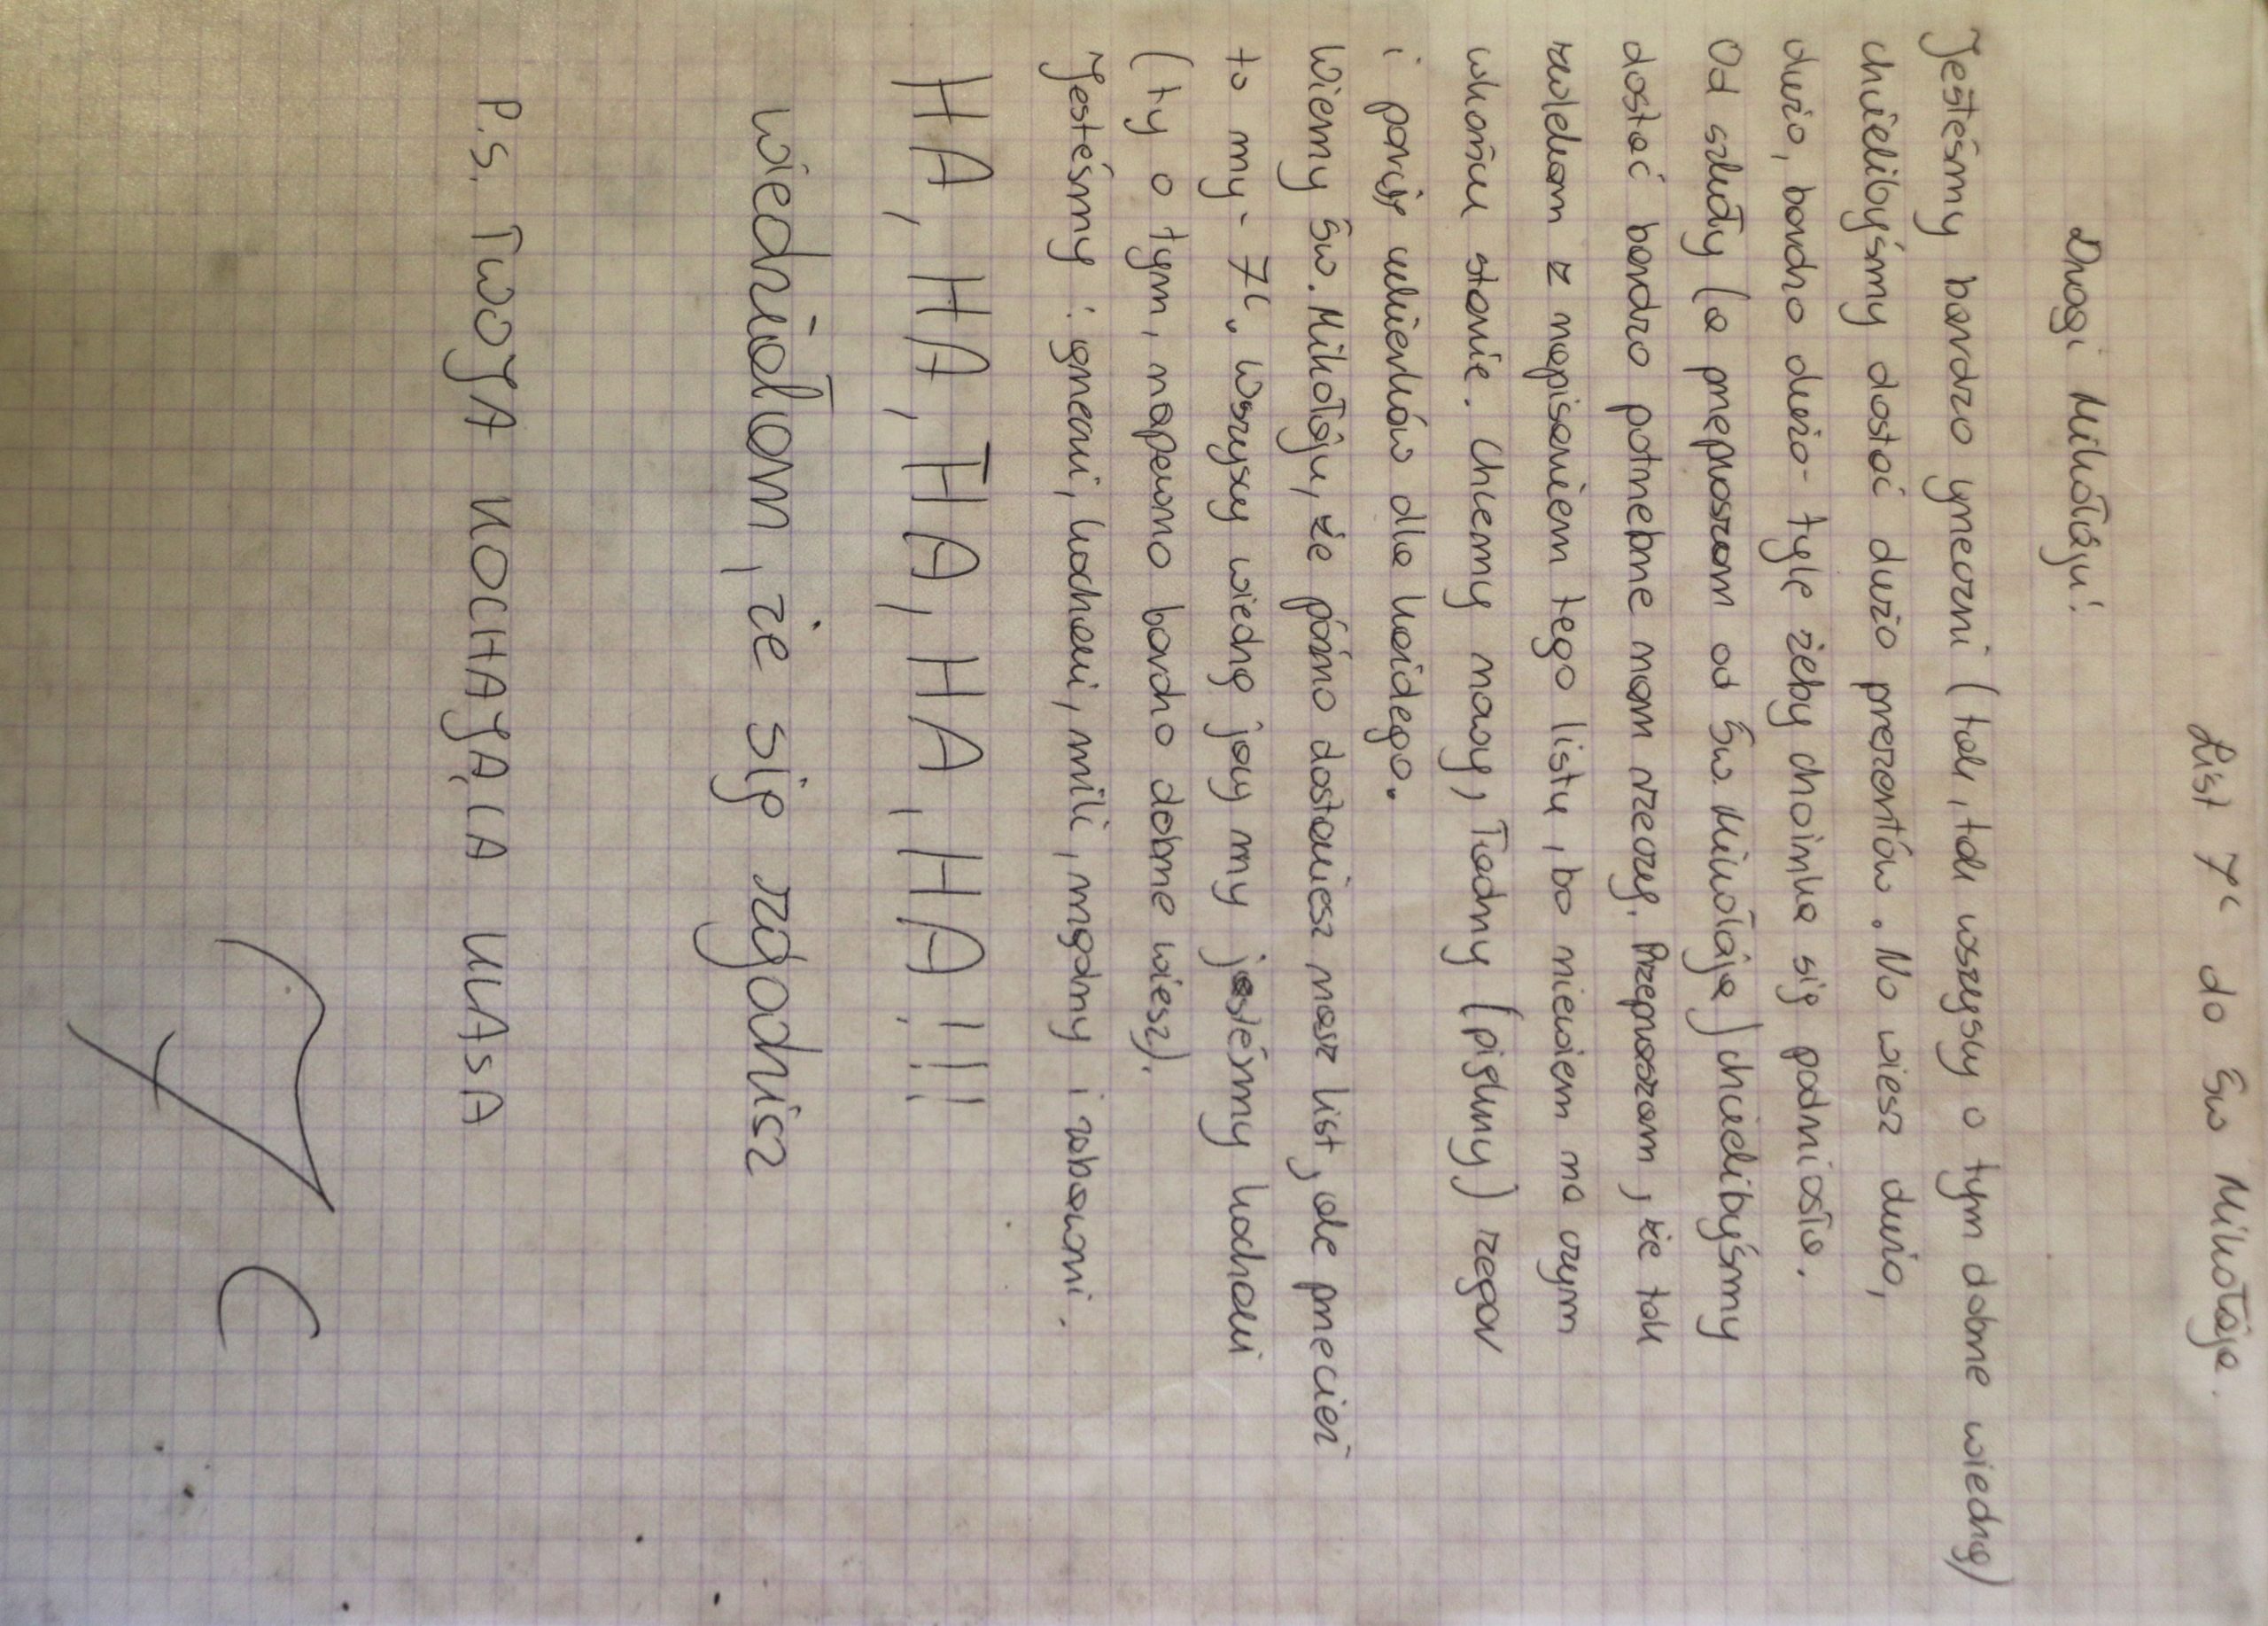 List 7c do Św Mikołaja.
Drogi Mikołaju!
Jesteśmy bardzo grzeczni (tak, tak wszyscy o tym dobrze wiedzą)
chcielibyśmy dostać dużo prezentów. No wiesz dużo,
dużo, bardzo dużo - tyle żeby choinka się podniosła.
Od szkoły (a przepraszam od Św. Mikołaja) chcielibyśmy
dostać bardzo potrzebne nam rzeczy. Przepraszam, że tak
zwlekam z napisaniem tego listu, bo niewiem na czym
wkońcu stanie. Chcemy nowy, ładny (piękny) zegar
i parę cukierków dla każdego.
Wiemy Św. Mikołaju, że późno dostaniesz nasz list, ale przecież
to my - 7c. Wszyscy wiedzą jacy my jesteśmy kochani
(ty o tym, napewno bardzo dobrze wiesz).
Jesteśmy: grzeczni, kochani, mili, mądrzy i zabawni.
HA, HA, HA, HA, HA!!!
wiedziałam, że się zgodzisz
P.S. TWOJA KOCHAJĄCA KLASA
7 C